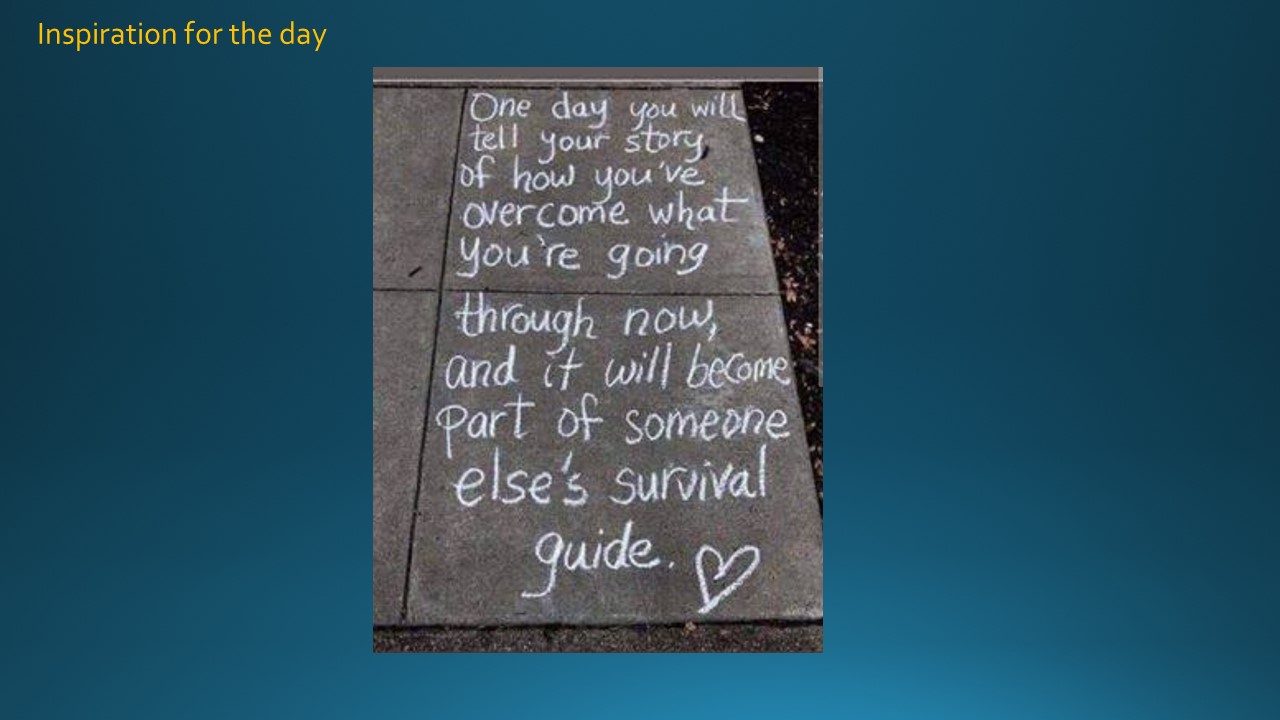 Inspiration for the day
One day you will
tell your story
of how you've
overcome what
you're going
through now,
and it will become
part of someone
else's survival
guide.